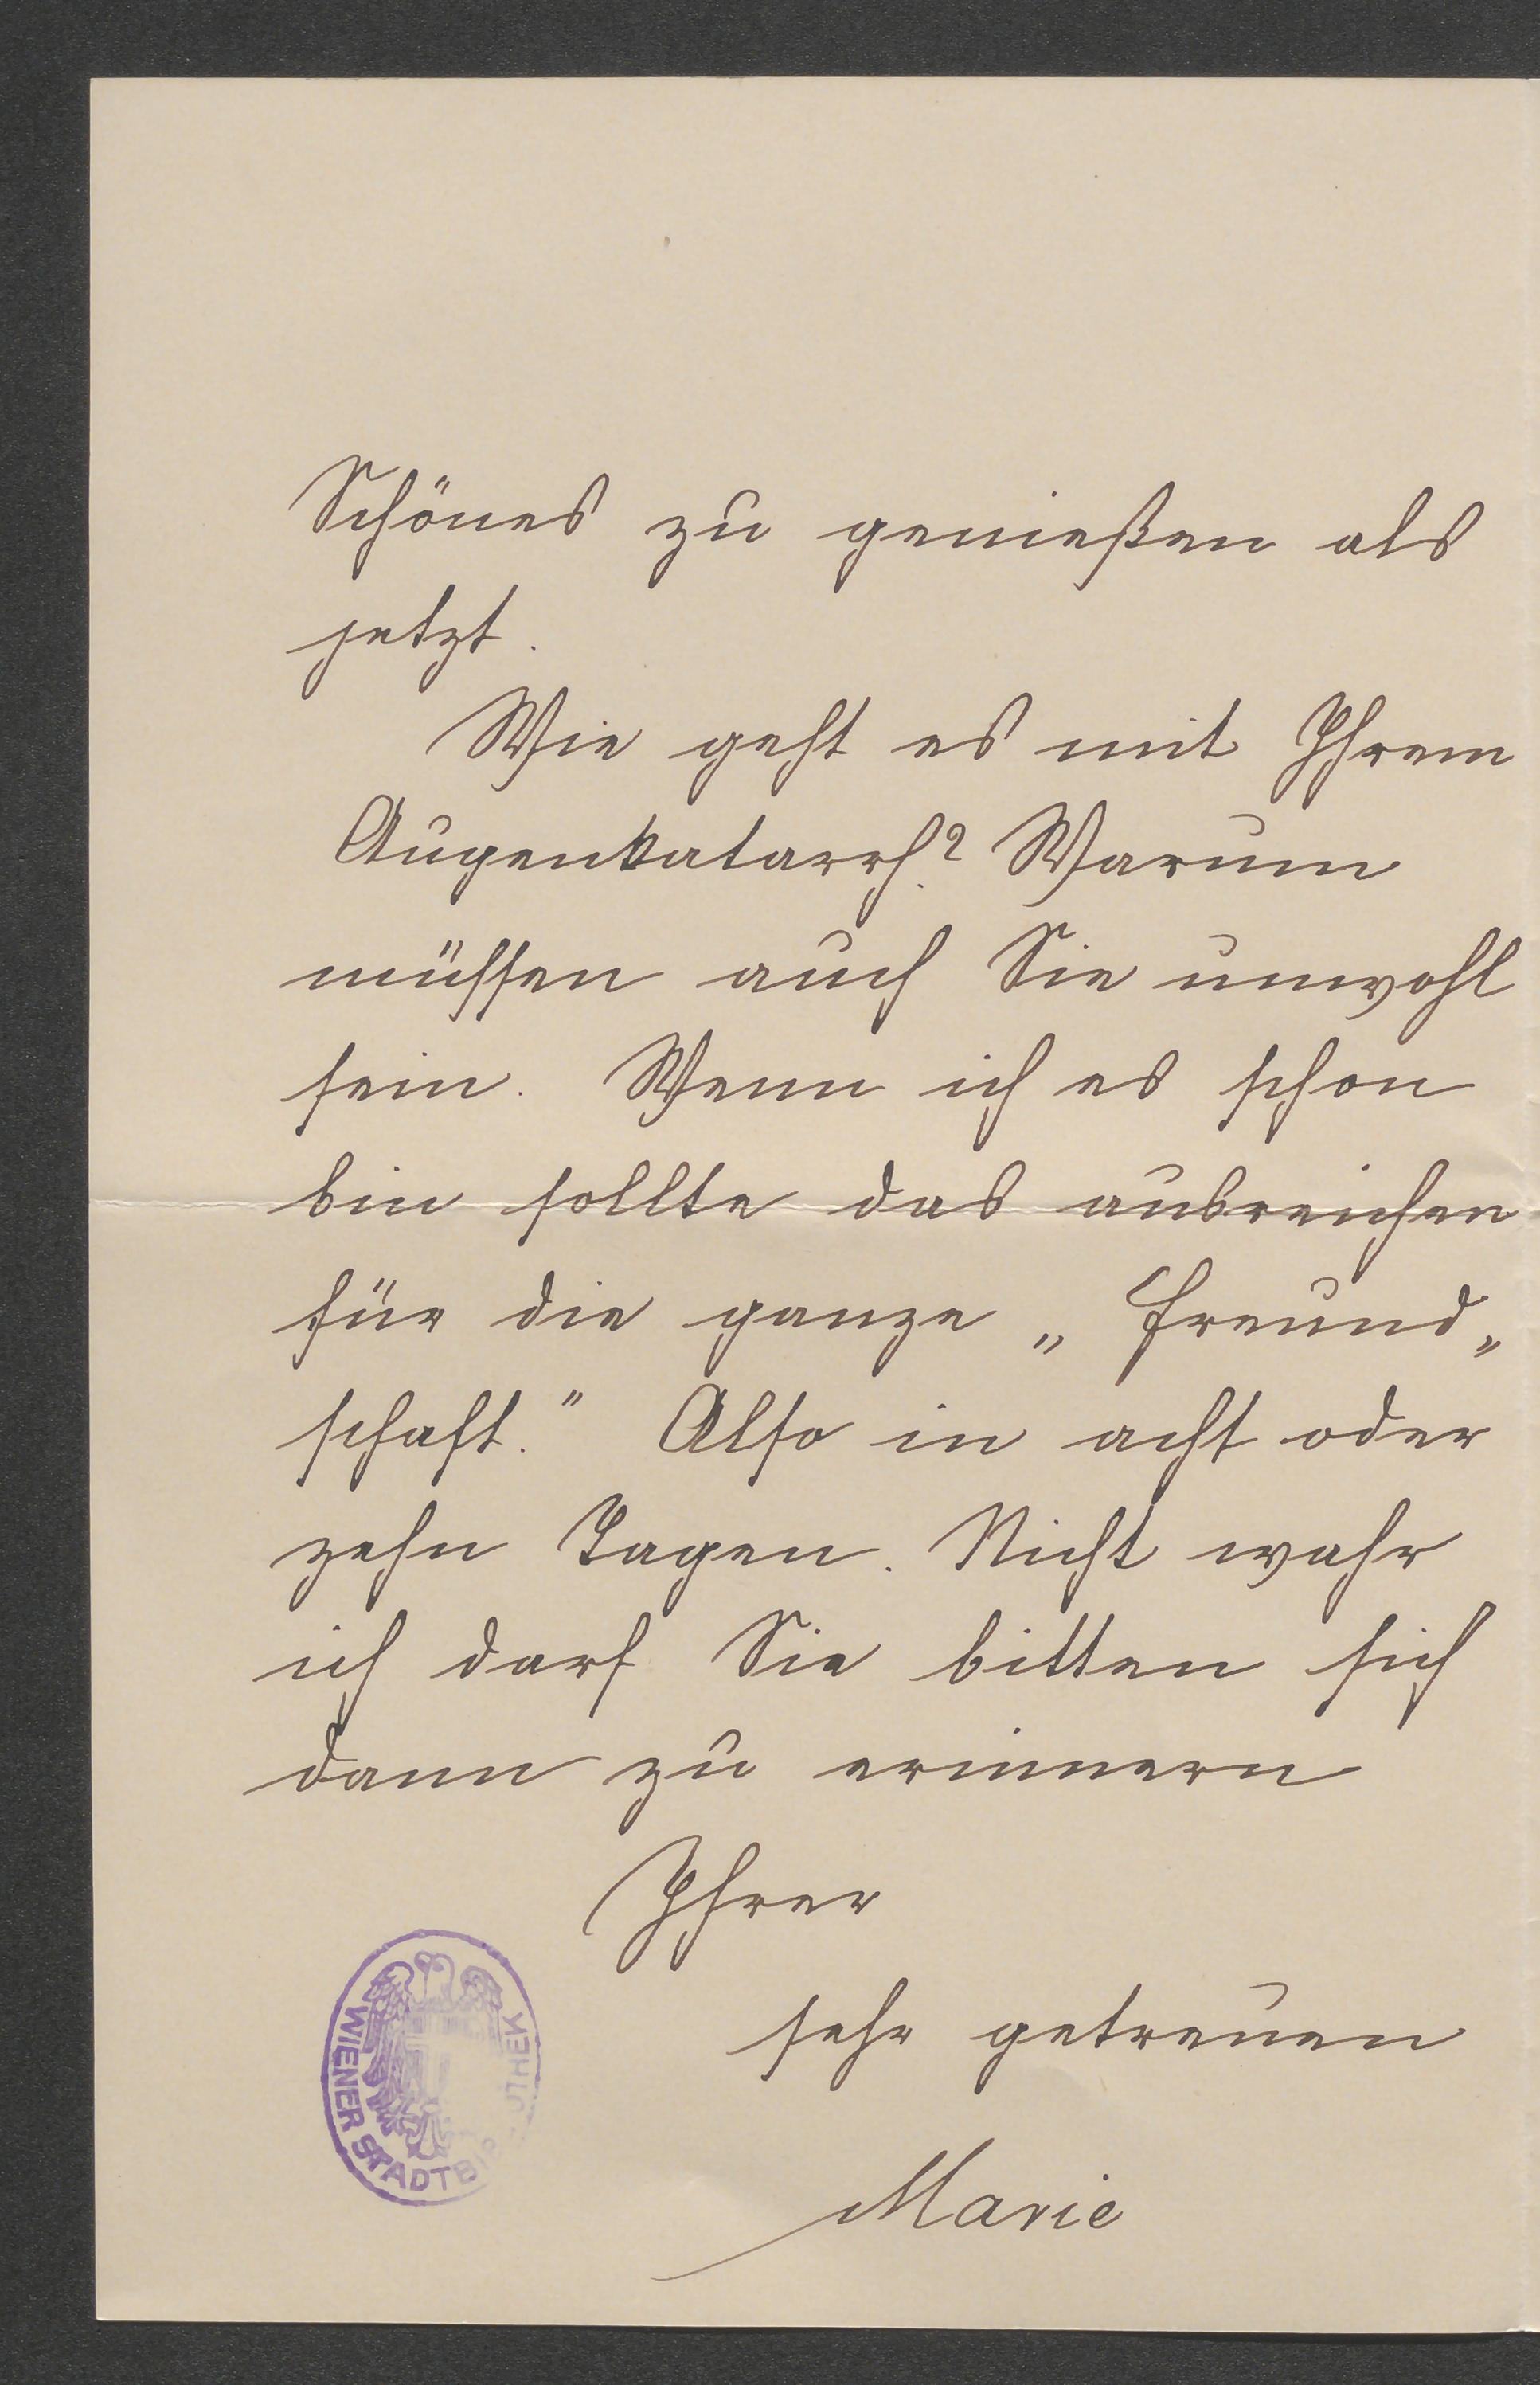 Schönes zu genießen als
jetzt.
Wie geht es mit Ihrem
Augenkatarrh? Warum
müssen auch Sie unwohl
sein. Wenn ich es schon
bin sollte das ausreichen
für die ganze „Freund„
schaft.“ Also in acht oder
zehn Tagen. Nicht wahr
ich darf Sie bitten sich
dann zu erinnern
Ihrer
sehr getreuen
Marie
WIENER STADTBIBLIOTHEK